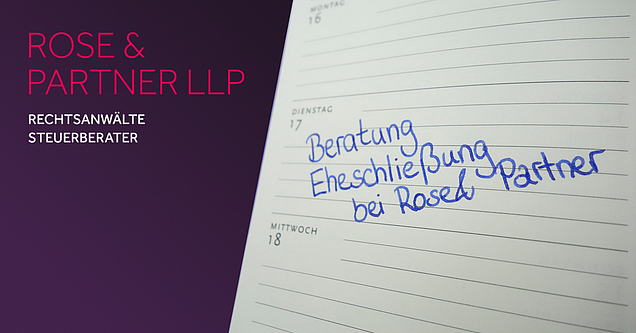 ROSE &
PARTNER LLP
RECHTSANWÄLTE
STEUERBERATER
MONTAG
16
DIENSTAG
17
Beratung
Eheschließung
bei Rose& Partner
MITTWOCH
18